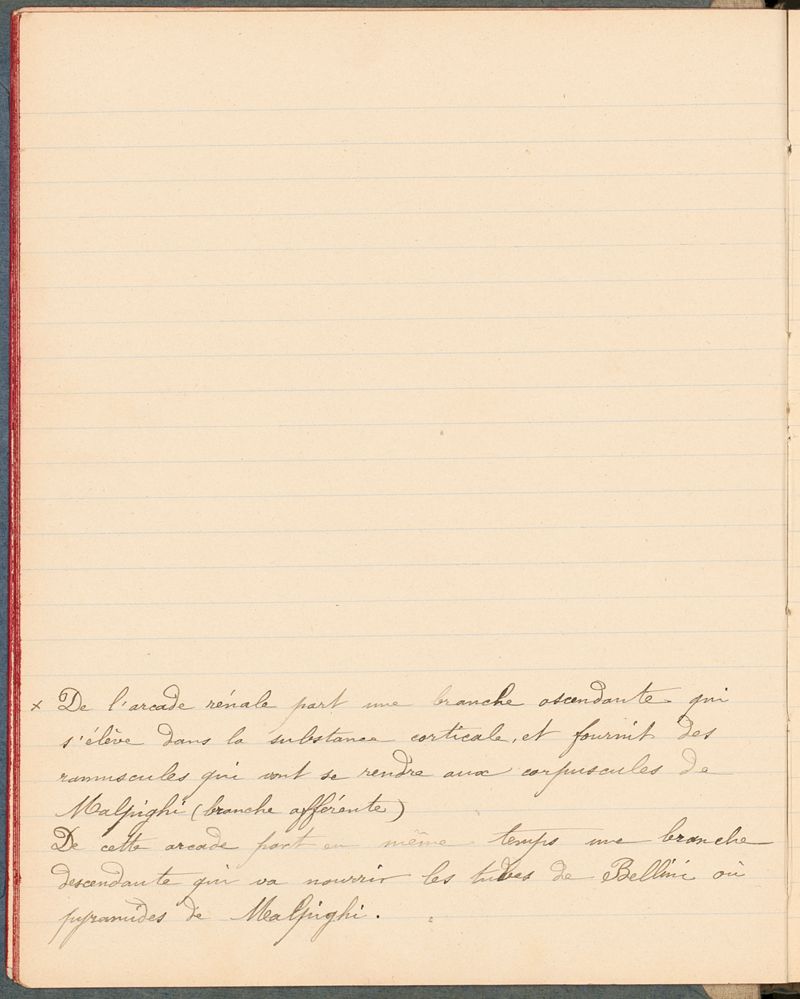 x De l'arcade rénale part une branche ascendante qui
s'élève dans la substance corticale, et fournit des
ramuscules qui vont se rendre aux corpuscules de
Malpighi (branche afférente)
De cette arcade part en même temps une branche
descendante qui va nourrir les tubes de Bellini où
pyramides de Malpighi.